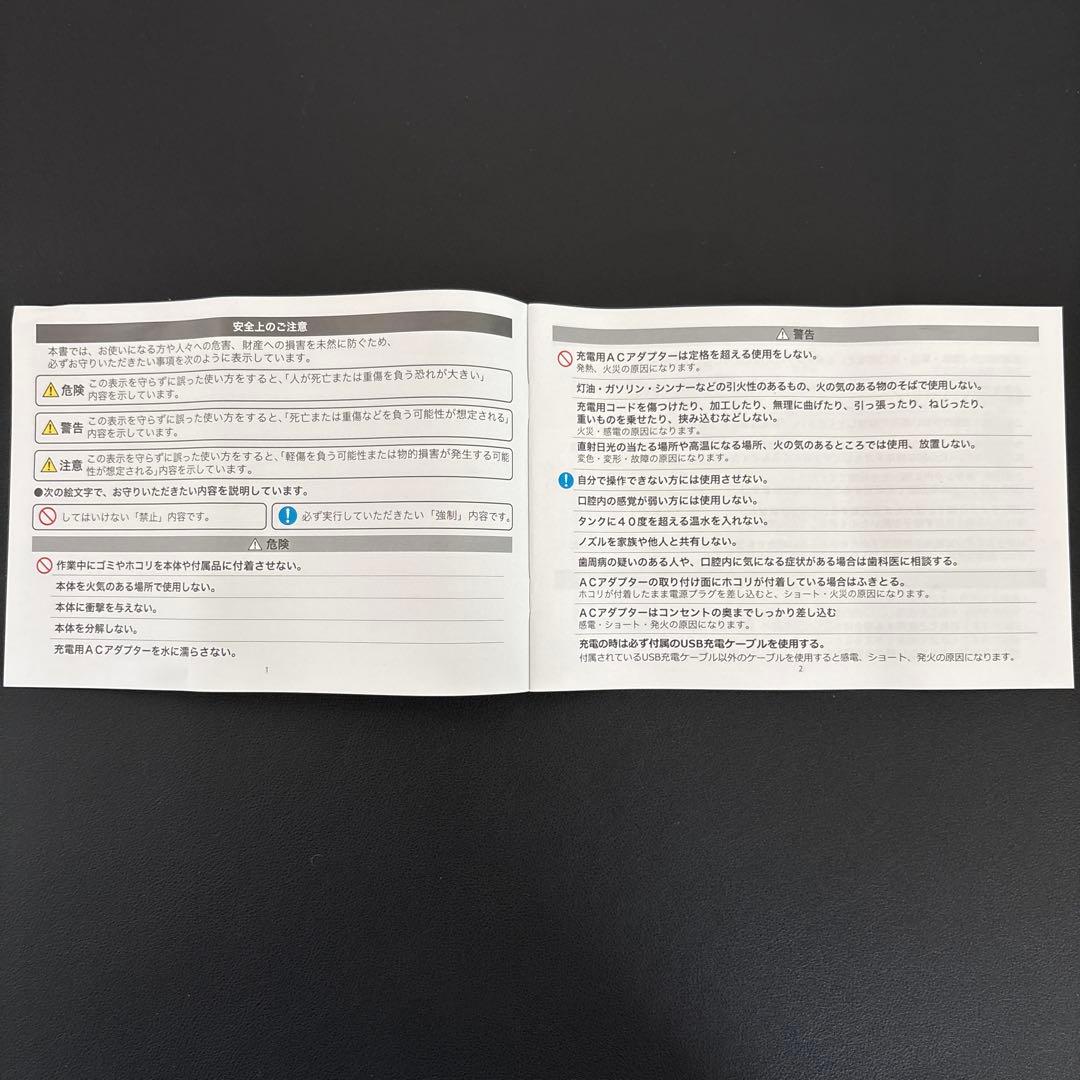 安全上のご注意
本書では、お使いになる方や人々への危害、財産への損害を未然に防ぐため、
必ずお守りいただきたい事項を次のように表示しています。
危険 この表示を守らずに誤った使い方をすると、「人が死亡または重傷を負う恐れが大きい」
内容を示しています。
警告 この表示を守らずに誤った使い方をすると、「死亡または重傷などを負う可能性が想定される」
内容を示しています。
注意 この表示を守らずに誤った使い方をすると、「軽傷を負う可能性または物的損害が発生する可能
性が想定される」内容を示しています。
●次の絵文字で、お守りいただきたい内容を説明しています。
してはいけない「禁止」内容です。
必ず実行していただきたい「強制」内容です。
危険
作業中にゴミやホコリを本体や付属品に付着させない。
本体を火気のある場所で使用しない。
本体に衝撃を与えない。
本体を分解しない。
充電用ACアダプターを水に濡らさない。
1
警告
充電用ACアダプターは定格を超える使用をしない。
発熱、火災の原因になります。
灯油・ガソリン・シンナーなどの引火性のあるもの、火の気のある物のそばで使用しない。
充電用コードを傷つけたり、加工したり、無理に曲げたり、引っ張ったり、ねじったり、
重いものを乗せたり、挟み込むなどしない。
火災・感電の原因になります。
直射日光の当たる場所や高温になる場所、火の気のあるところでは使用、放置しない。
変色・変形・故障の原因になります。
自分で操作できない方には使用させない。
口腔内の感覚が弱い方には使用しない。
タンクに40度を超える温水を入れない。
ノズルを家族や他人と共有しない。
歯周病の疑いのある人や、口腔内に気になる症状がある場合は歯科医に相談する。
ACアダプターの取り付け面にホコリが付着している場合はふきとる。
ホコリが付着したまま電源プラグを差し込むと、ショート・火災の原因になります。
ACアダプターはコンセントの奥までしっかり差し込む
感電・ショート・発火の原因になります。
充電の時は必ず付属のUSB充電ケーブルを使用する。
付属されているUSB充電ケーブル以外のケーブルを使用すると感電、ショート、発火の原因になります。
2